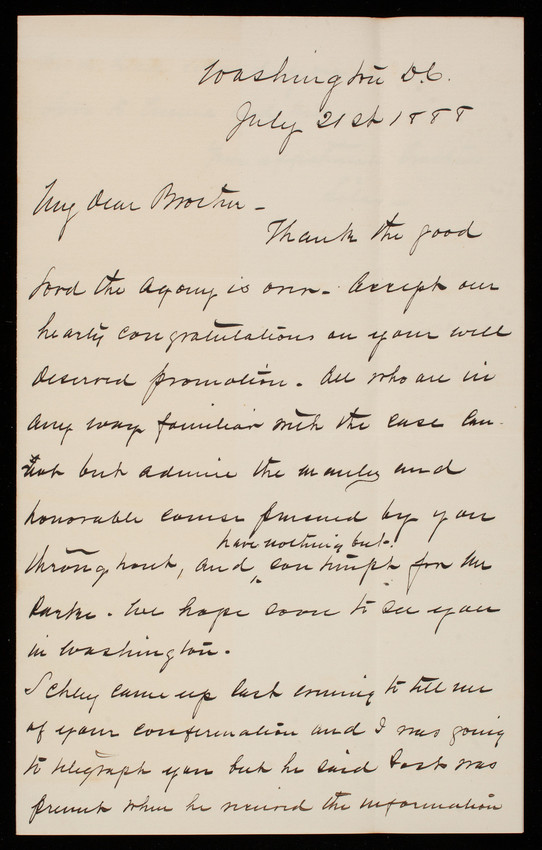 Washington D.C.
July 21st 1888
My dear Brother -
Thank the good
Lord the agony is over - Accept our
hearty congratulations on your well
deserved promotion. All who are in
any way familiar with the case can
not but admire the manly and
honorable course pursued by you
have nothing but
throughout, and contempt for Mr
We hope soon to see you
in Washington.
Schley came up last evening to tell me
of your confirmation and I was going
to telegraph you but he said was
present when he received the information